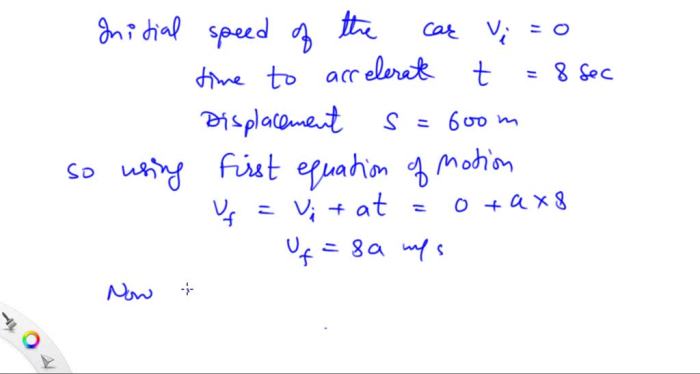 Initial speed of the car Vi = 0
time to accelerate t = 8 sec
Displacement S = 600 m
so using first equation of motion
Vf = Vi + at = 0 + a × 8
Vf = 8a m/s
Now